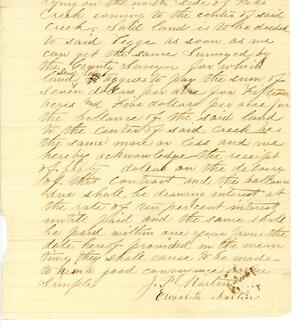 lying on the north side of
Creek coming to the center of said
Creek. Said land is to be deeded
to said Legge as soon as we
can get the same Surveyed by
the County Surveyor for which
land Said Legge agrees to pay the sum of
Seven dollars per acre for Fifteen
acres and Five dollars per acre for
the ballance of the said land
to the center of said Creek be
the same more or less and we
hereby acknowledge the receipt
of fifty dollars on the delivery
of this contract and the ballance
due shall be drawing interest
the rate of ten per cent interest
untill paid and the same shall
be paid within one year from the
date hereof provided in the mean
time they shall cause to be made
to him a good conveyance
Simple
J. P. Martin
Elizabeth Martin